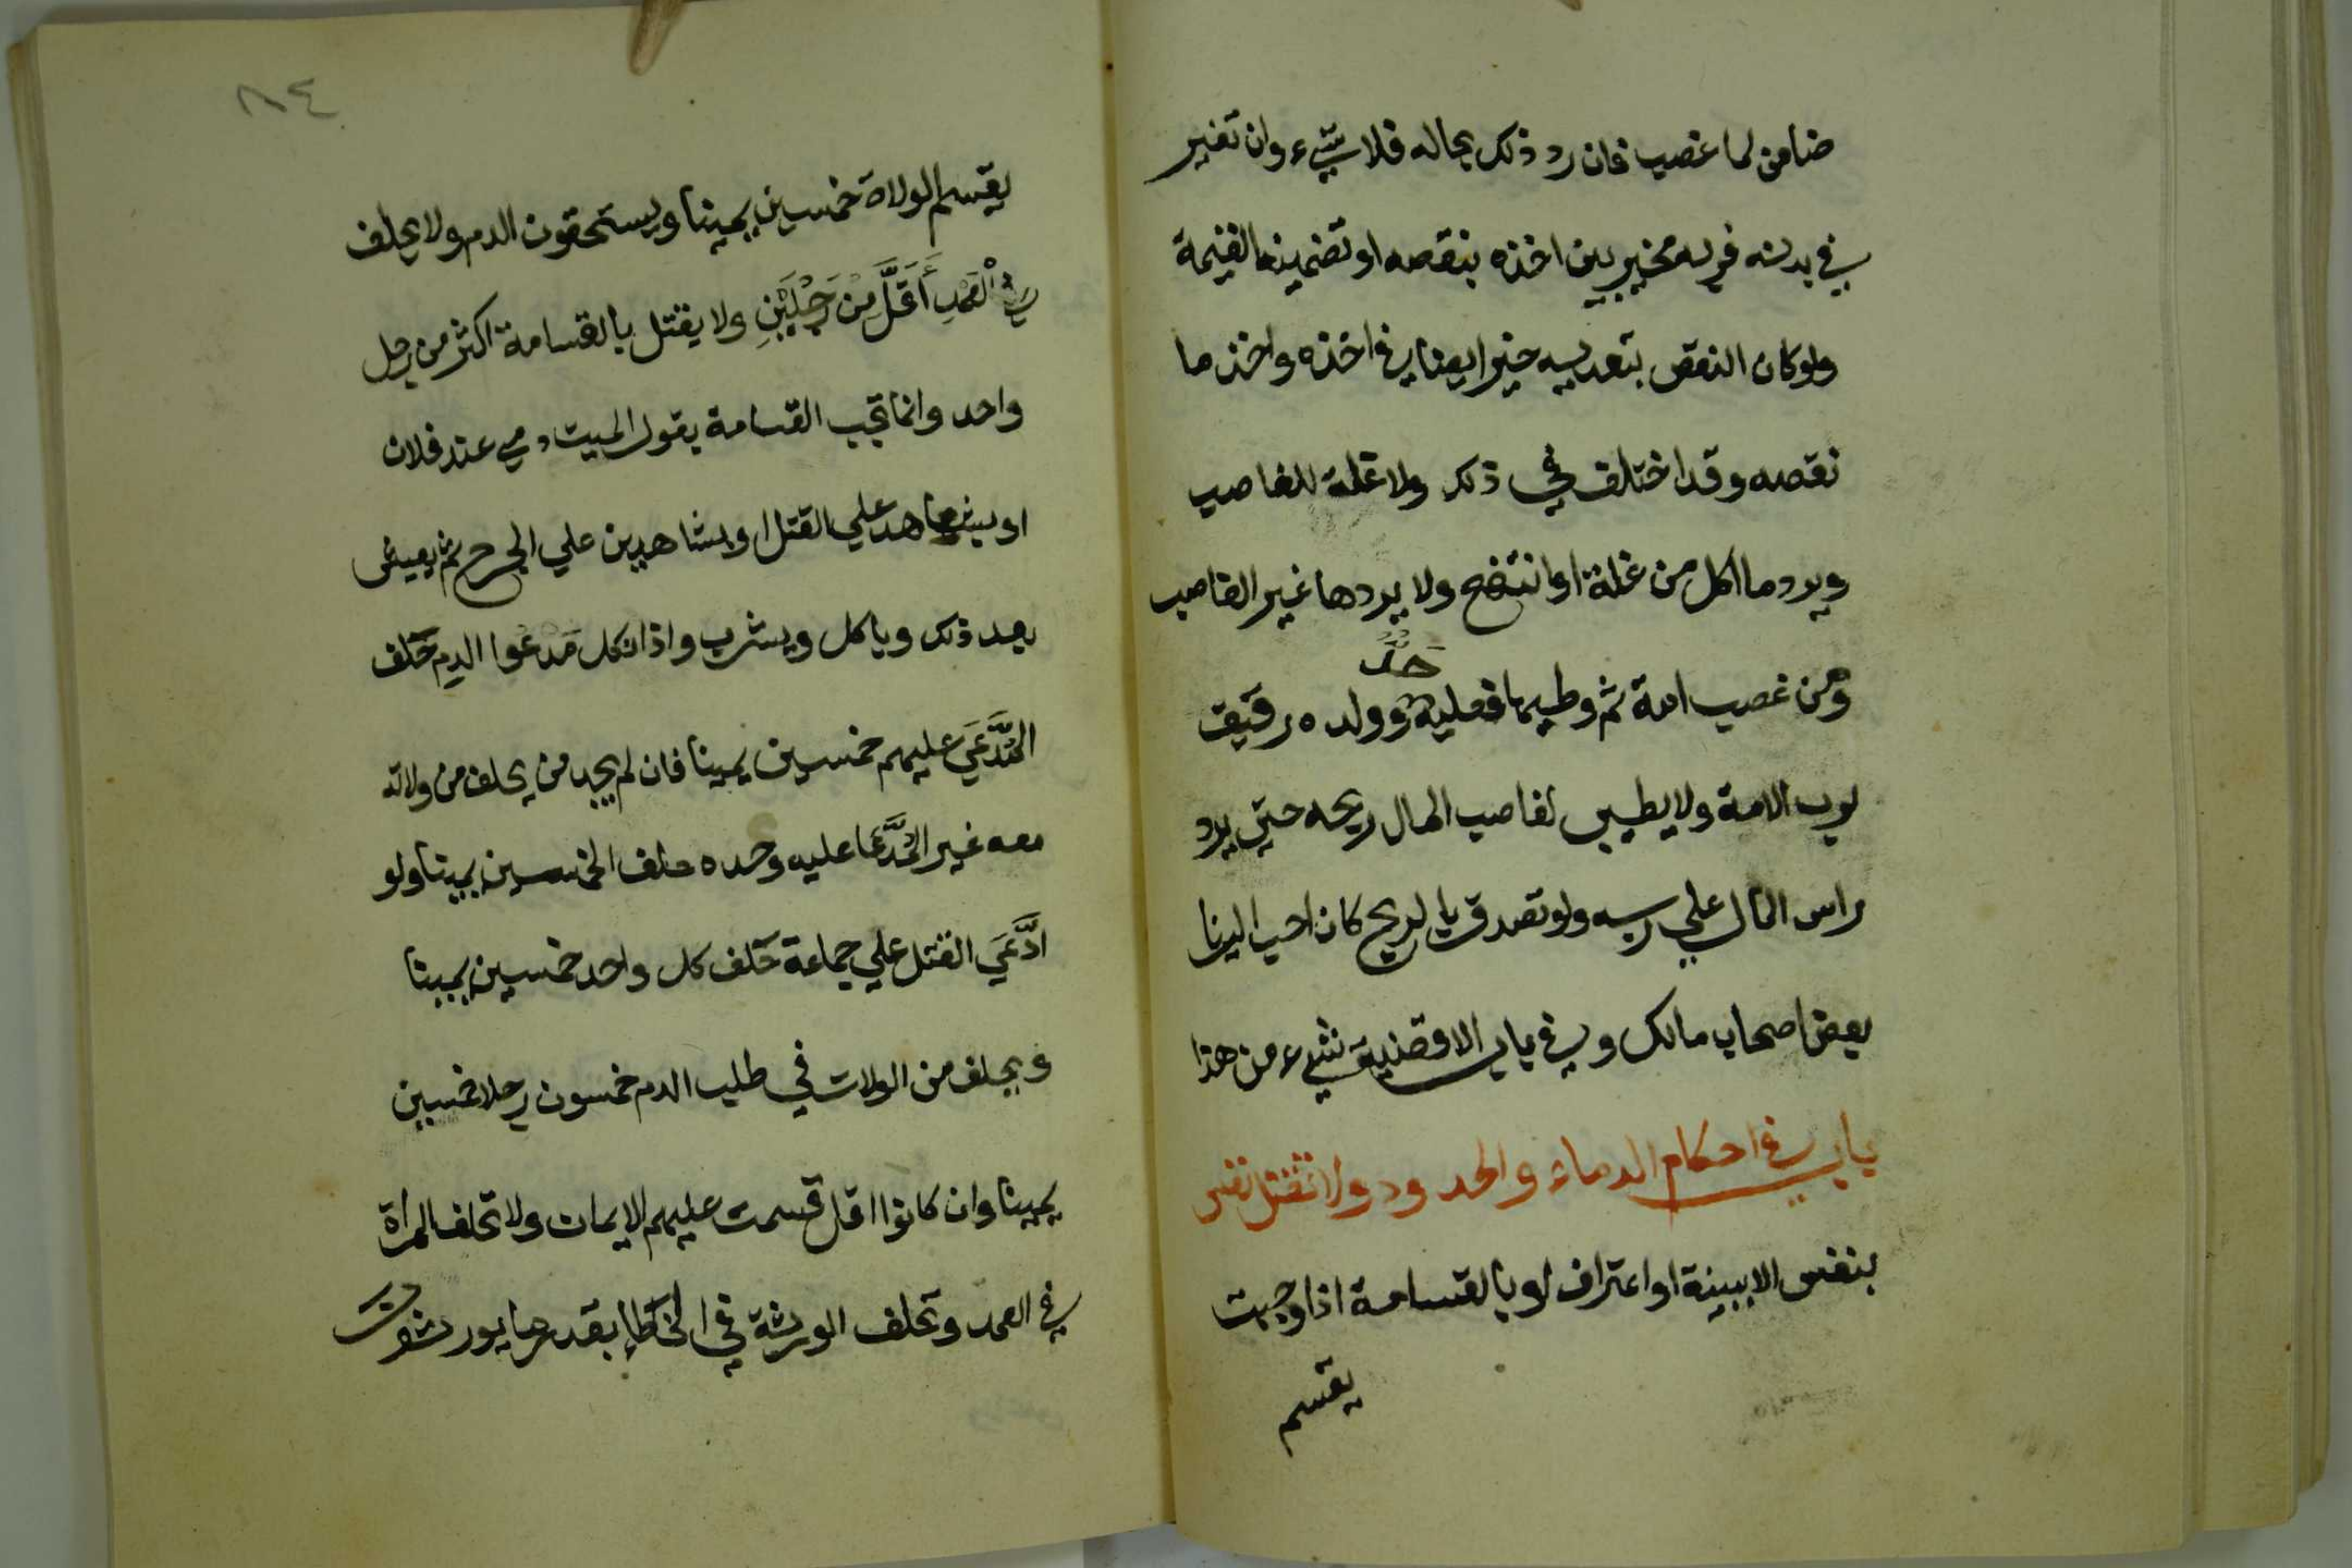 ضامن لما غصب فان رد ذلك بحاله فلا شيء وان تغير
في يده فربه مخير بين اخذه بنقصه او تضمينه القيمة
ولو كان النقص بتعديه خير ايضا في اخذه واخذ ما
نقصه وقد اختلف في ذلك ولا غلة للغاصب
ويرد ما اكل من غلة او انتفع ولا يردها غير الغاصب
حد
ومن غصب امة ثم وطيها فعليه وولده رقيق
لرب الامة ولا يطيب لغاصب المال ربحه حتي يرد
راس المال علي ربه ولو تصدق بالربح كان احب الينا
بعض اصحاب مالك وفي باب الاقضية شيء من هذا
باب في احكام الدماء والحدود ولا تقتل نفس
بنفس الا ببينة او اعتراف او بالقسامة اذا وجبت
يقسم
٨٤
يقسم الولاة خمسين يمينا ويستحقون الدم ولا يحلف
في الْعَمْدِ أَقَلَّ مِنْ رَجُلَيْنِ ولا يقتل بالقسامة اكثر من رجل
واحد وانما تجب القسامة بقول الميت دمي عند فلان
او بشاهد علي القتل او بشاهدين علي الجرح ثم يعيش
بعد ذلك وياكل ويشرب واذا نكل مَدعوا الدم حَلف
المُدَّعَي عليهم خمسين يمينا فان لم يجد من يحلف من ولاته
معه غير المُدَّعا عليه وحده حلف الخمسين يمينا ولو
ادَّعَي القتل علي جماعة حَلف كل واحد خمسين يمينا
ويحلف من الولات في طلب الدم خمسون رجلا خمسين
يمينا وان كانوا اقل قسمت عليهم الايمان ولا تحلف المراة
في العمد وتحلف الورثة في الخَطَإ بقدر ما يورثون